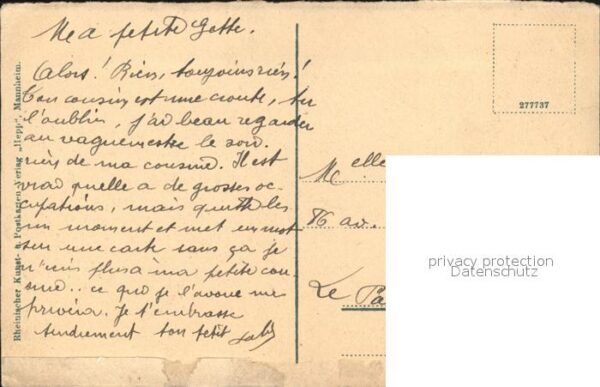 Ma petite Gotte.
Alors! Rien, toujours rien!
Ton cousin est une croute, tu
l'oublies, j'ai beau regarder
au vaguemestre le soir
rien de ma cousine. Il est
vrai quelle a de grosses oc-
cupations, mais quitte les
un moment et met un mot
sur une carte sans ça je
n'écris plus à ma petite cou-
sine.. ce que je l'avoue me
privera. Je t'embrasse
tendrement ton petit
Rheinischer Kunst- u. Postkarten-Verlag „Hepp", Mannheim.
277737
Melle
Av.
Le Pa
privacy protection
Datenschutz